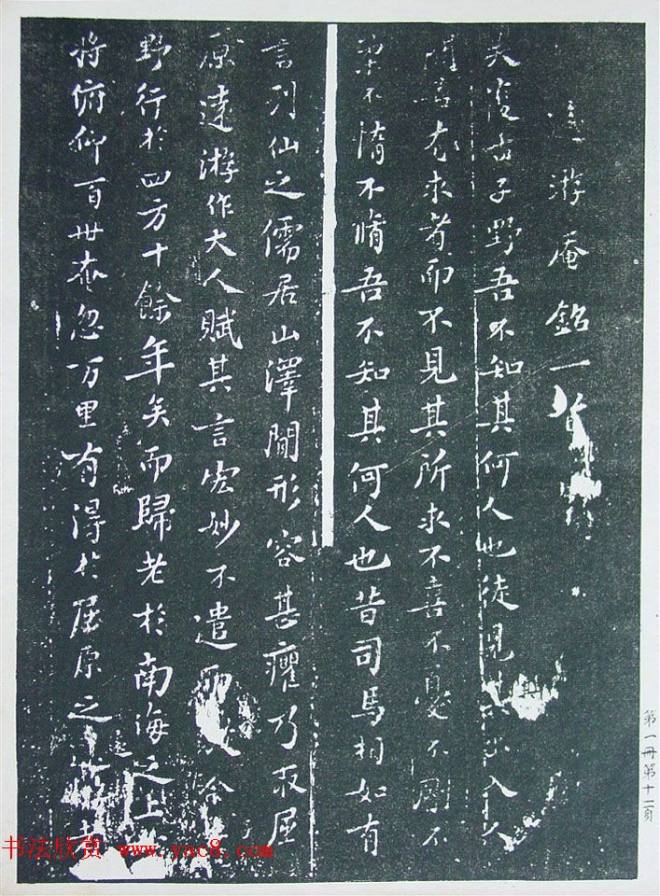 遠游庵銘一首
吴復古子野吾不知其何人也徒見其出入人
間若有求者而不見其所求不喜不憂不剛不
柔不惰不脩吾不知其何人也昔司馬相如有
言列仙之儒居山澤間形容甚癯乃取屈
原遠游作大人賦其言宏妙不遣而放今
野行於四方十餘年矣而歸老於南海之上
將俯仰百世奄忽万里有得於屈原之遠游者
第一冊第十二頁
书法欣赏 www.yac8.com